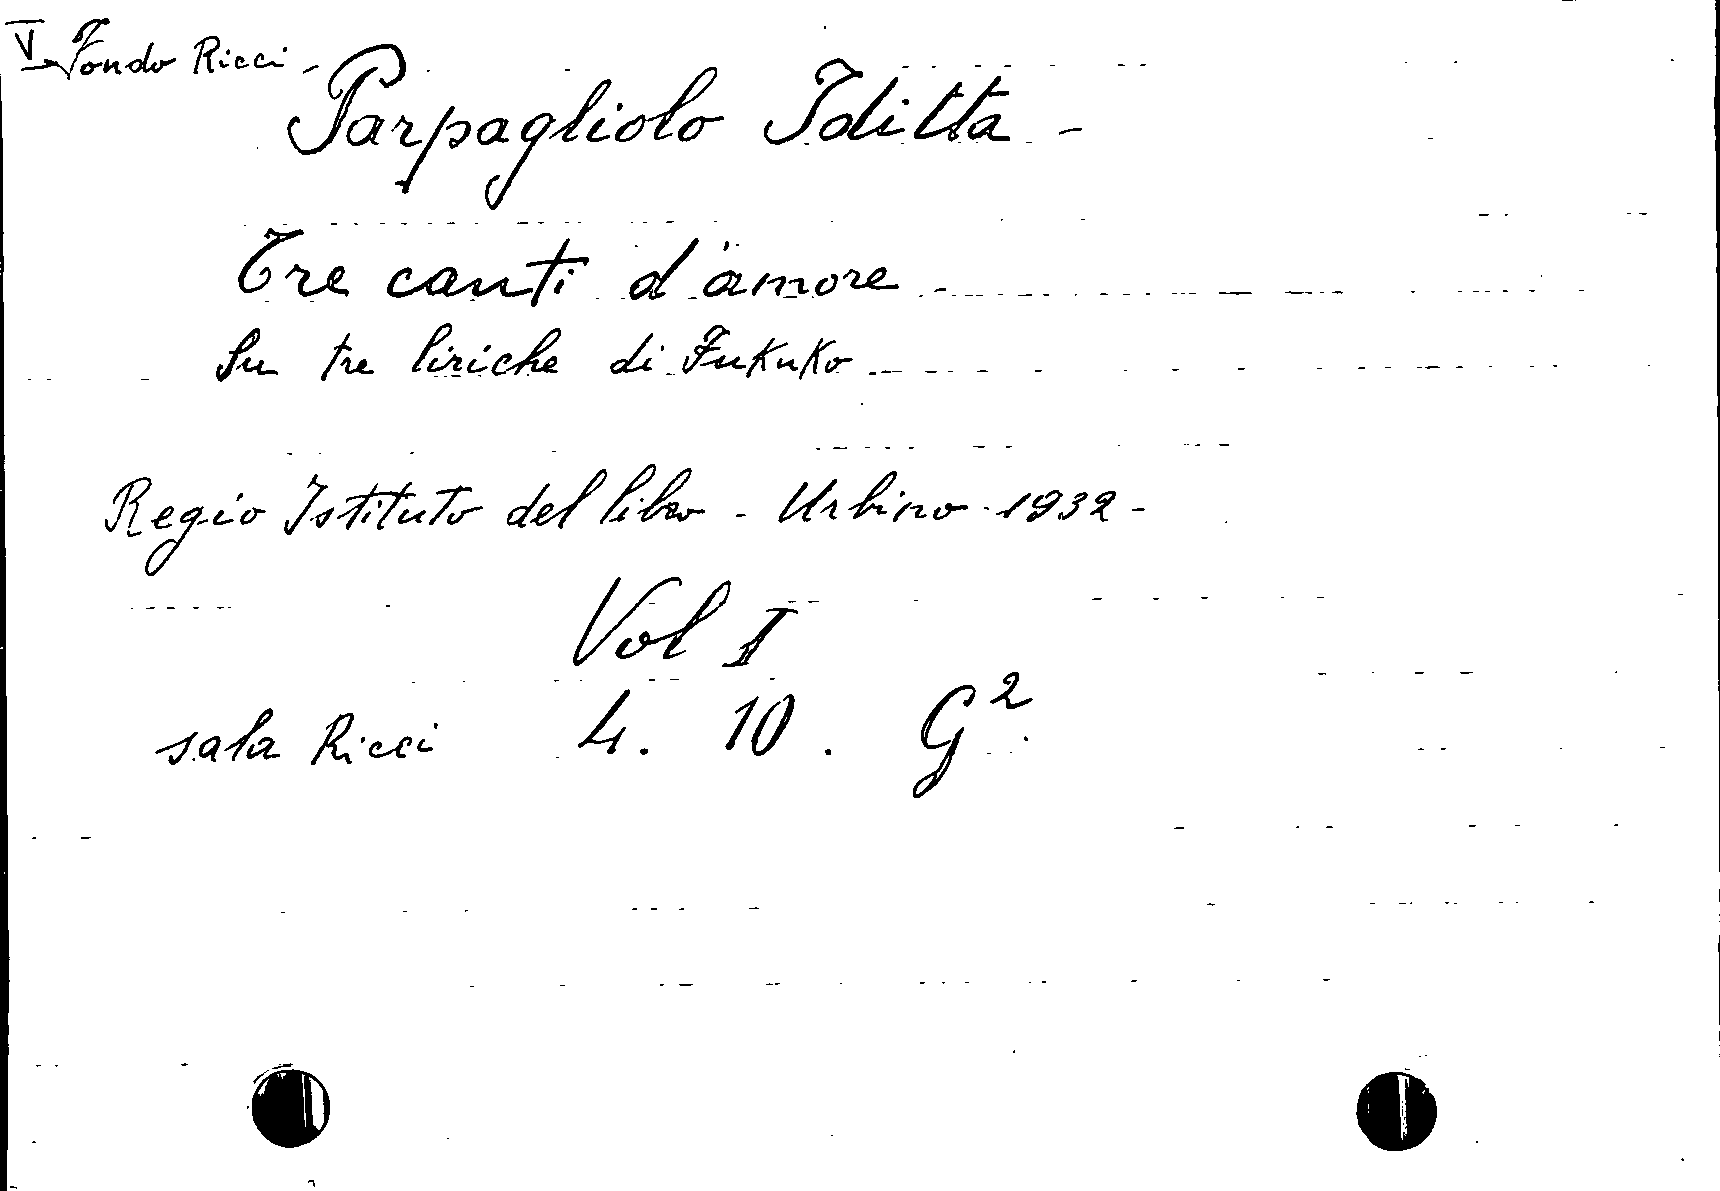 V Fondo Ricci -
Parpagliolo Iditta -
Tre canti d'amore
Su tre liriche di Fukuko
Regio Istituto del libro - Urbino 1932 -
Vol I
sala Ricci 4. 10. G²